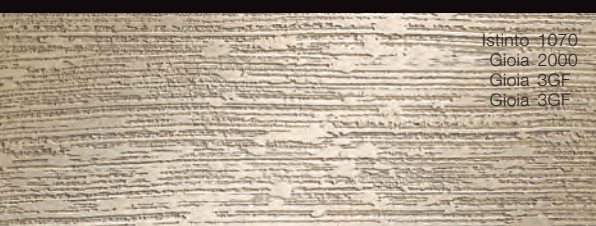 Istinto 1070
Gioia 2000
Gioia 3GF
Gioia 3GF